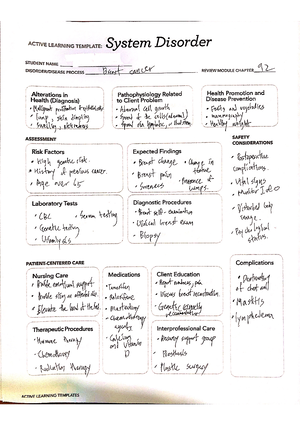 ACTIVE LEARNING TEMPLATE: System Disorder
STUDENT NAME
DISORDER/DISEASE PROCESS Breast cancer REVIEW MODULE CHAPTER 92
Alterations in
Health (Diagnosis)
• Lump, skin dimpling
• Swelling,
Pathophysiology Related
to Client Problem
• Abnormal cell growth
• Spread of the cells (abnormal)
• Spread via lymphatic,
Health Promotion and
Disease Prevention
• Fruits and vegetables
• mammography
• Healthy weight
ASSESSMENT
SAFETY
CONSIDERATIONS
• Postoperative
complications.
• Vital signs
• Monitor I & O
• Disturbed body
image.
• Psychological
status.
Risk Factors
• High genetic risk.
• History of previous cancer.
• Age over 65
Expected Findings
• Breast change
• Breast pain
• Soreness
• Change in
• Presence of
lumps.
Laboratory Tests
• CBC
• Genetic testing
• Urinalysis
• Serum testing
Diagnostic Procedures
• Breast self-examination
• Clinical breast exam
• Biopsy
PATIENT-CENTERED CARE
Nursing Care
• Provide emotional support.
• Elevate the head of the bed.
Medications
• Tamoxifen
• Raloxifene
• Chemotherapy
agents
• Calcium
and Vitamin
D
Client Education
• Discuss breast reconstruction
• Genetic
Therapeutic Procedures
• Hormone therapy
• Chemotherapy
• Radiation therapy
Interprofessional Care
• Recovery support group
• Prosthesis
• Plastic surgery
Complications
of chest wall
• Mastitis
• Lymphedema
ACTIVE LEARNING TEMPLATES